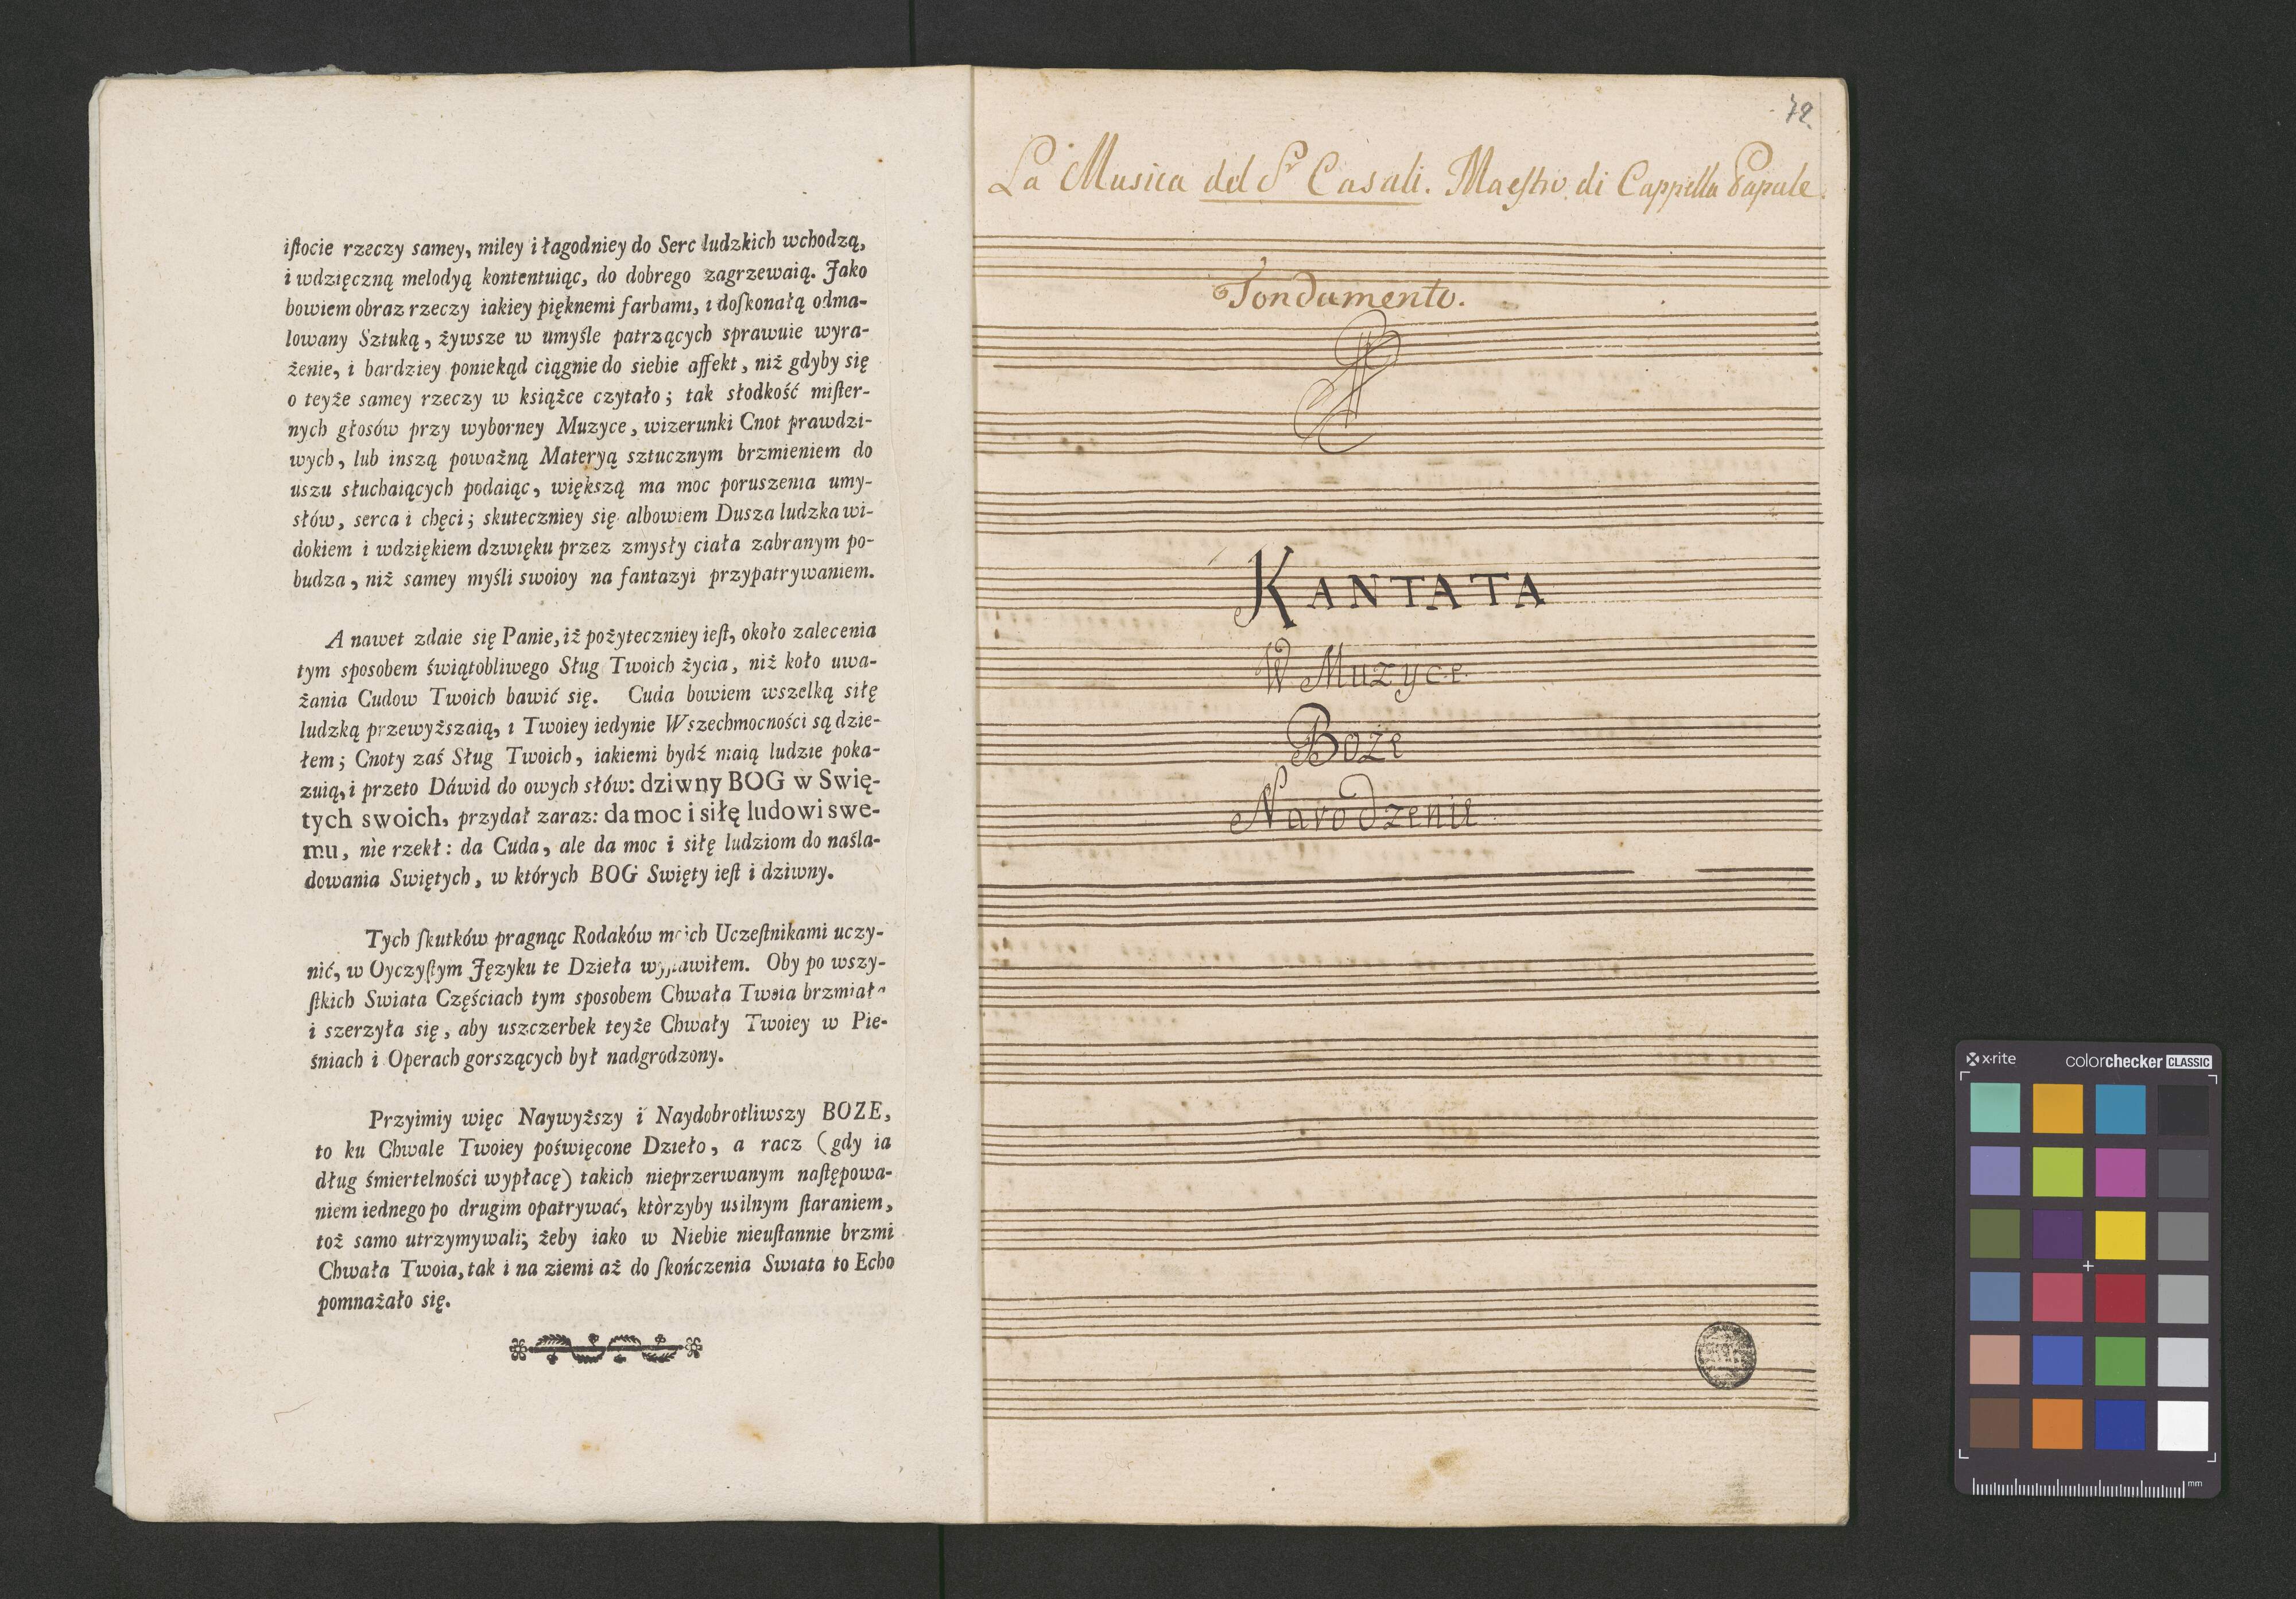 iſtocie rzeczy samey, miley i łagodniey do Serc ludzkich wchodzą,
i wdzięczną melodyą kontentuiąc, do dobrego zagrzewaią. Jako
bowiem obraz rzeczy iakiey pięknemi farbami, i doſkonałą odma-
lowany Sztuką, żywsze w umyśle patrzących sprawuie wyra-
żenie, i bardziey poniekąd ciągnie do siebie affekt, niż gdyby się
o teyże samey rzeczy w książce czytało; tak słodkość miſter-
nych głosów przy wyborney Muzyce, wizerunki Cnot prawdzi-
wych, lub inszą poważną Materyą sztucznym brzmieniem do
uszu słuchaiących podaiąc, większą ma moc poruszenia umy-
słów, serca i chęci; skuteczniey się albowiem Dusza ludzka wi-
dokiem i wdziękiem dzwięku przez zmysły ciała zabranym po-
budza, niż samey myśli swoioy na fantazyi przypatrywaniem.
A nawet zdaie się Panie, iż pożyteczniey ieſt, około zalecenia
tym sposobem świątobliwego Sług Twoich życia, niż koło uwa-
żania Cudow Twoich bawić się. Cuda bowiem wszelką siłę
ludzką przewyższaią, i Twoiey iedynie Wszechmocności są dzie-
łem; Cnoty zaś Sług Twoich, iakiemi bydź maią ludzie poka-
zuią, i przeto Dáwid do owych słów: dziwny BOG w Swię-
tych swoich, przydał zaraz: da moc i siłę ludowi swe-
mu, nie rzekł: da Cuda, ale da moc i siłę ludziom do naśla-
dowania Swiętych, w których BOG Swięty ieſt i dziwny.
Tych ſkutków pragnąc Rodaków moich Uczeſtnikami uczy-
nić, w Oyczyſtym Języku te Dzieła wyſtawiłem. Oby po wszy-
ſtkich Swiata Częściach tym sposobem Chwała Twoia brzmiała
i szerzyła się, aby uszczerbek teyże Chwały Twoiey w Pie-
śniach i Operach gorszących był nadgrodzony.
Przyimiy więc Naywyższy i Naydobrotliwszy BOZE,
to ku Chwale Twoiey poświęcone Dzieło, a racz (gdy ia
dług śmiertelności wypłacę) takich nieprzerwanym naſtępowa-
niem iednego po drugim opatrywać, ktòrzyby usilnym ſtaraniem,
toż samo utrzymywali; żeby iako w Niebie nieuſtannie brzmi
Chwała Twoia, tak i na ziemi aż do ſkończenia Swiata to Echo
pomnażało się.
72
La Musica del Sr Casali. Maeſtro di Cappella Papale.
Fondamento.
KANTATA
W Muzyce
Boże
Narodzenie
x-rite colorchecker CLASSIC
mm